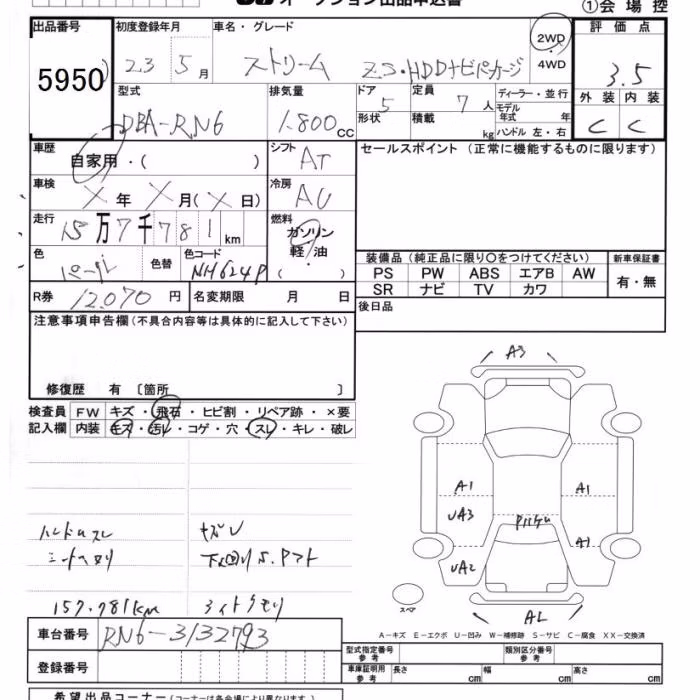 オークション出品申込書
①会場控
出品番号 初度登録年月 車名・グレード 評価点
5950 23 5月 ストリーム ZS・HDDナビパッケージ 2WD 4WD 3.5
型式 排気量 ドア 定員 ディーラー・並行 外装 内装
DBA-RN6 1.800cc 5 7人 モデル年式 年 C C
形状 積載 kg ハンドル 左・右
車歴 シフト セールスポイント(正常に機能するものに限ります)
自家用・( ) AT
車検 冷房
X年 X月(X日) AC
走行 燃料
15万7千781km ガソリン・軽・油
色 色替 色コード ( )
パール NH624P
装備品(純正品に限り○をつけてください) 新車保証書
PS PW ABS エアB AW 有・無
SR ナビ TV カワ
R券 12070円 名変期限 月 日
後日品
注意事項申告欄(不具合内容等は具体的に記入して下さい)
修復歴 有〔箇所 〕
検査員 FW キズ・飛石・ヒビ割・リペア跡・×要
記入欄 内装 キズ・汚レ・コゲ・穴・スレ・キレ・破レ
A3
A1 A1
UA3
A1
UA2
ハンドルスレ
シートヘタリ
下回りS.
157.781km
スペア
A-キズ E-エクボ U-凹み W-補修跡 S-サビ C-腐食 XX-交換済
車台番号 RN6-3132793
型式指定番号 参考 類別区分番号 参考
登録番号
車庫証明用 参考 長さ cm 幅 cm 高さ cm
希望出品コーナー(コーナーは各会場により異なります)